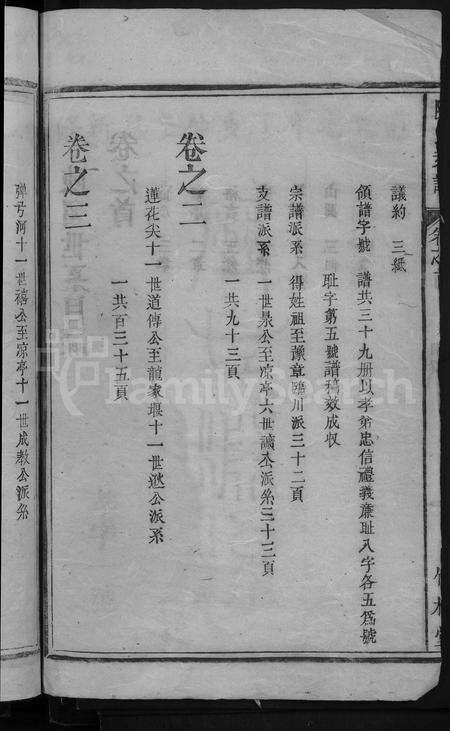 議約 三紙
領譜字號 譜共三十九册以孝弟忠信禮義廉耻八字各五爲號
耻字第五號譜稿效成収
宗譜派系 得姓祖至豫章臨川派三十二頁
支譜派系 一世景公至凉亭六世讀公派系三十三頁
一共九十三頁
卷之二
蓮花尖十一世道傳公至龍家堰十一世逑公派系
一共百三十五頁
卷之三
彈弓河十一世禧公至凉亭十一世成教公派系
FamilySearch